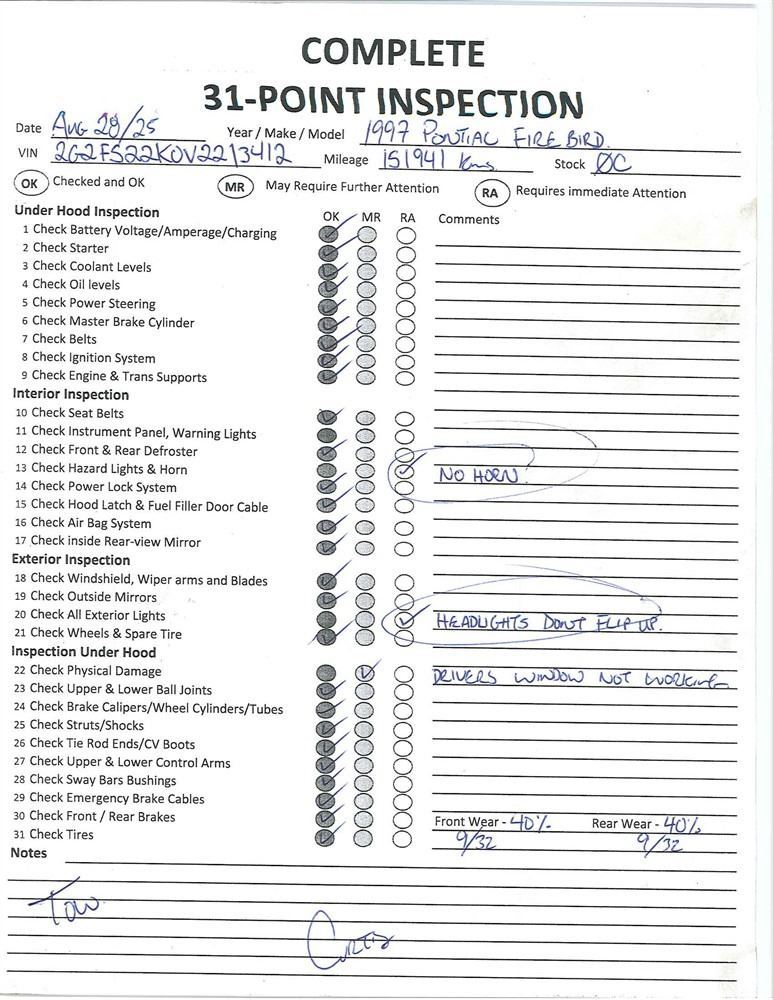 COMPLETE
31-POINT INSPECTION
Date Aug 28/25 Year / Make / Model 1997 PONTIAC FIREBIRD.
VIN 2G2FS22K0V2213412 Mileage 151941 Kms Stock ØC
OK Checked and OK MR May Require Further Attention RA Requires immediate Attention
Under Hood Inspection OK MR RA Comments
1 Check Battery Voltage/Amperage/Charging
2 Check Starter
3 Check Coolant Levels
4 Check Oil levels
5 Check Power Steering
6 Check Master Brake Cylinder
7 Check Belts
8 Check Ignition System
9 Check Engine & Trans Supports
Interior Inspection
10 Check Seat Belts
11 Check Instrument Panel, Warning Lights
12 Check Front & Rear Defroster
13 Check Hazard Lights & Horn NO HORN.
14 Check Power Lock System
15 Check Hood Latch & Fuel Filler Door Cable
16 Check Air Bag System
17 Check inside Rear-view Mirror
Exterior Inspection
18 Check Windshield, Wiper arms and Blades
19 Check Outside Mirrors
20 Check All Exterior Lights HEADLIGHTS DONT FLIP UP.
21 Check Wheels & Spare Tire
Inspection Under Hood
22 Check Physical Damage DRIVERS WINDOW NOT WORKING
23 Check Upper & Lower Ball Joints
24 Check Brake Calipers/Wheel Cylinders/Tubes
25 Check Struts/Shocks
26 Check Tie Rod Ends/CV Boots
27 Check Upper & Lower Control Arms
28 Check Sway Bars Bushings
29 Check Emergency Brake Cables
30 Check Front / Rear Brakes Front Wear - 40% Rear Wear - 40%
31 Check Tires 9/32 9/32
Notes
Tow
Curtis